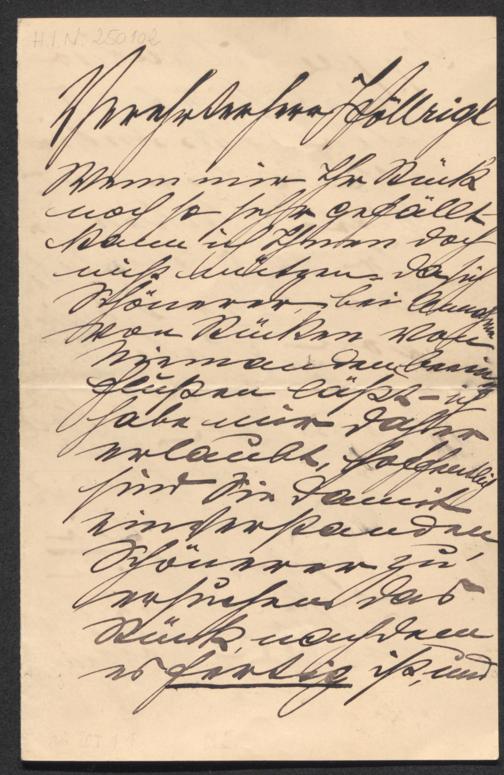 H.I.N. 250102
Verehrter Herr Pöllrigl
Wenn mir Ihr Stück
noch so sehr gefällt
kann ich Ihnen doch
nicht nützen, da sich
Schönerer, bei Annahme
von Stücken von
Niemanden beein-
flußen läßt – ich
habe mir daher
erlaubt, hoffentlich
sind Sie damit
einverstanden,
Schönerer zu
ersuchen das
Stück, nachdem
es fertig ist, und